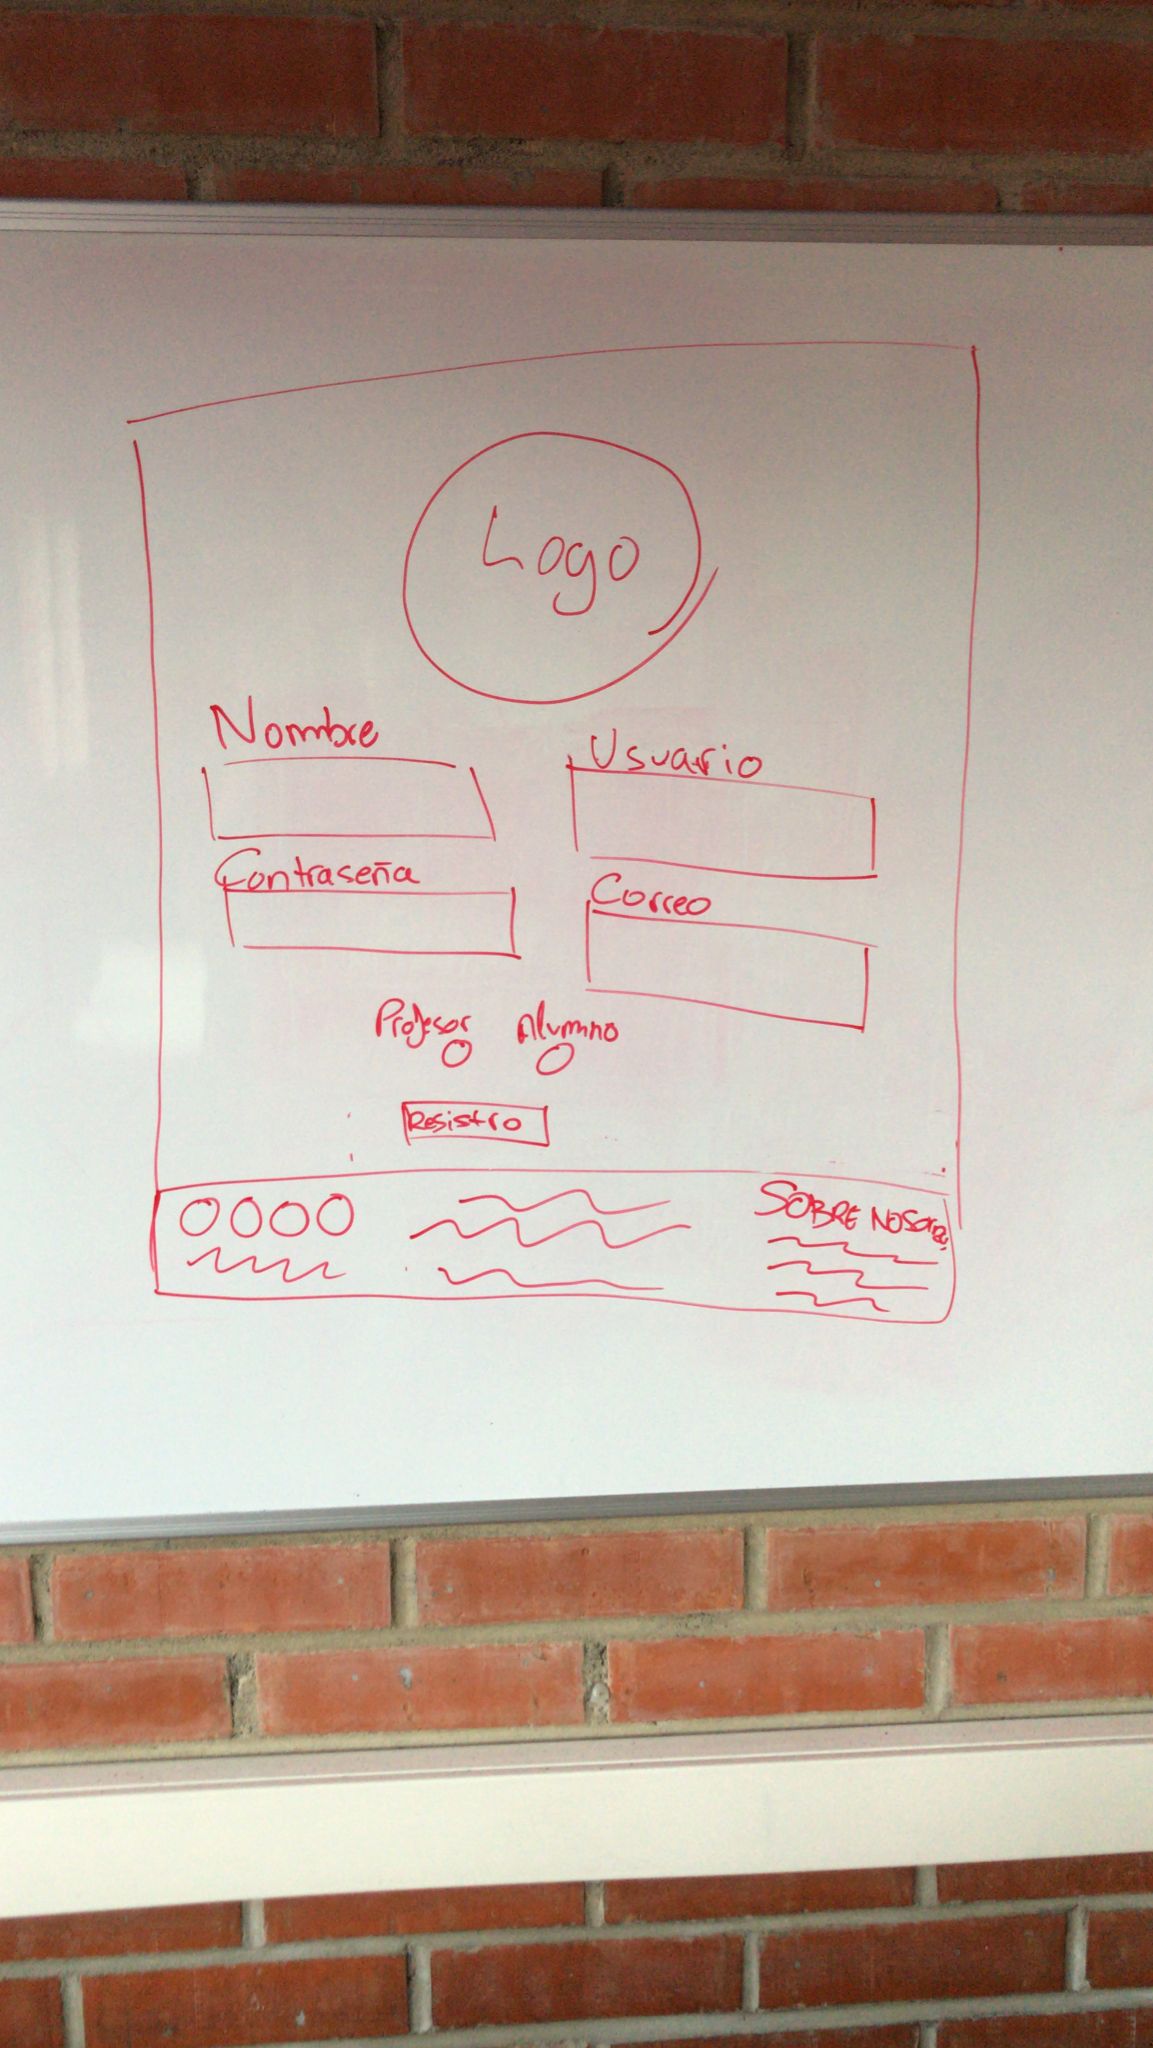 Logo
Nombre
Usuario
Contraseña
Correo
Profesor Alumno
Registro
SOBRE NOSOTROS